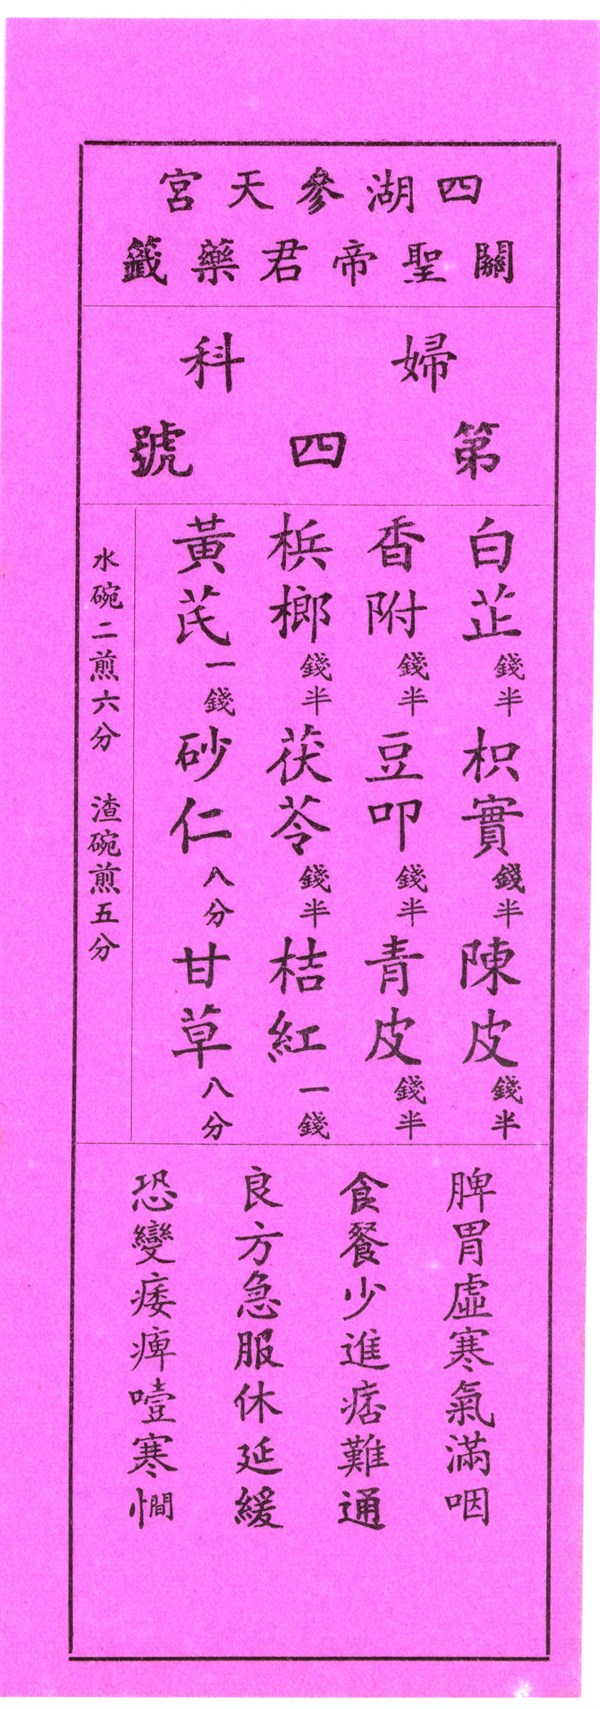 四湖參天宮
關聖帝君藥籤
婦科
第四號
白芷錢半 枳實錢半 陳皮錢半
香附錢半 豆叩錢半 青皮錢半
梹榔錢半 茯苓錢半 桔紅一錢
黃芪一錢 砂仁八分 甘草八分
水碗二煎六分 渣碗煎五分
脾胃虛寒氣滿咽
食餐少進痞難通
良方急服休延緩
恐變痿痺噎寒㦗